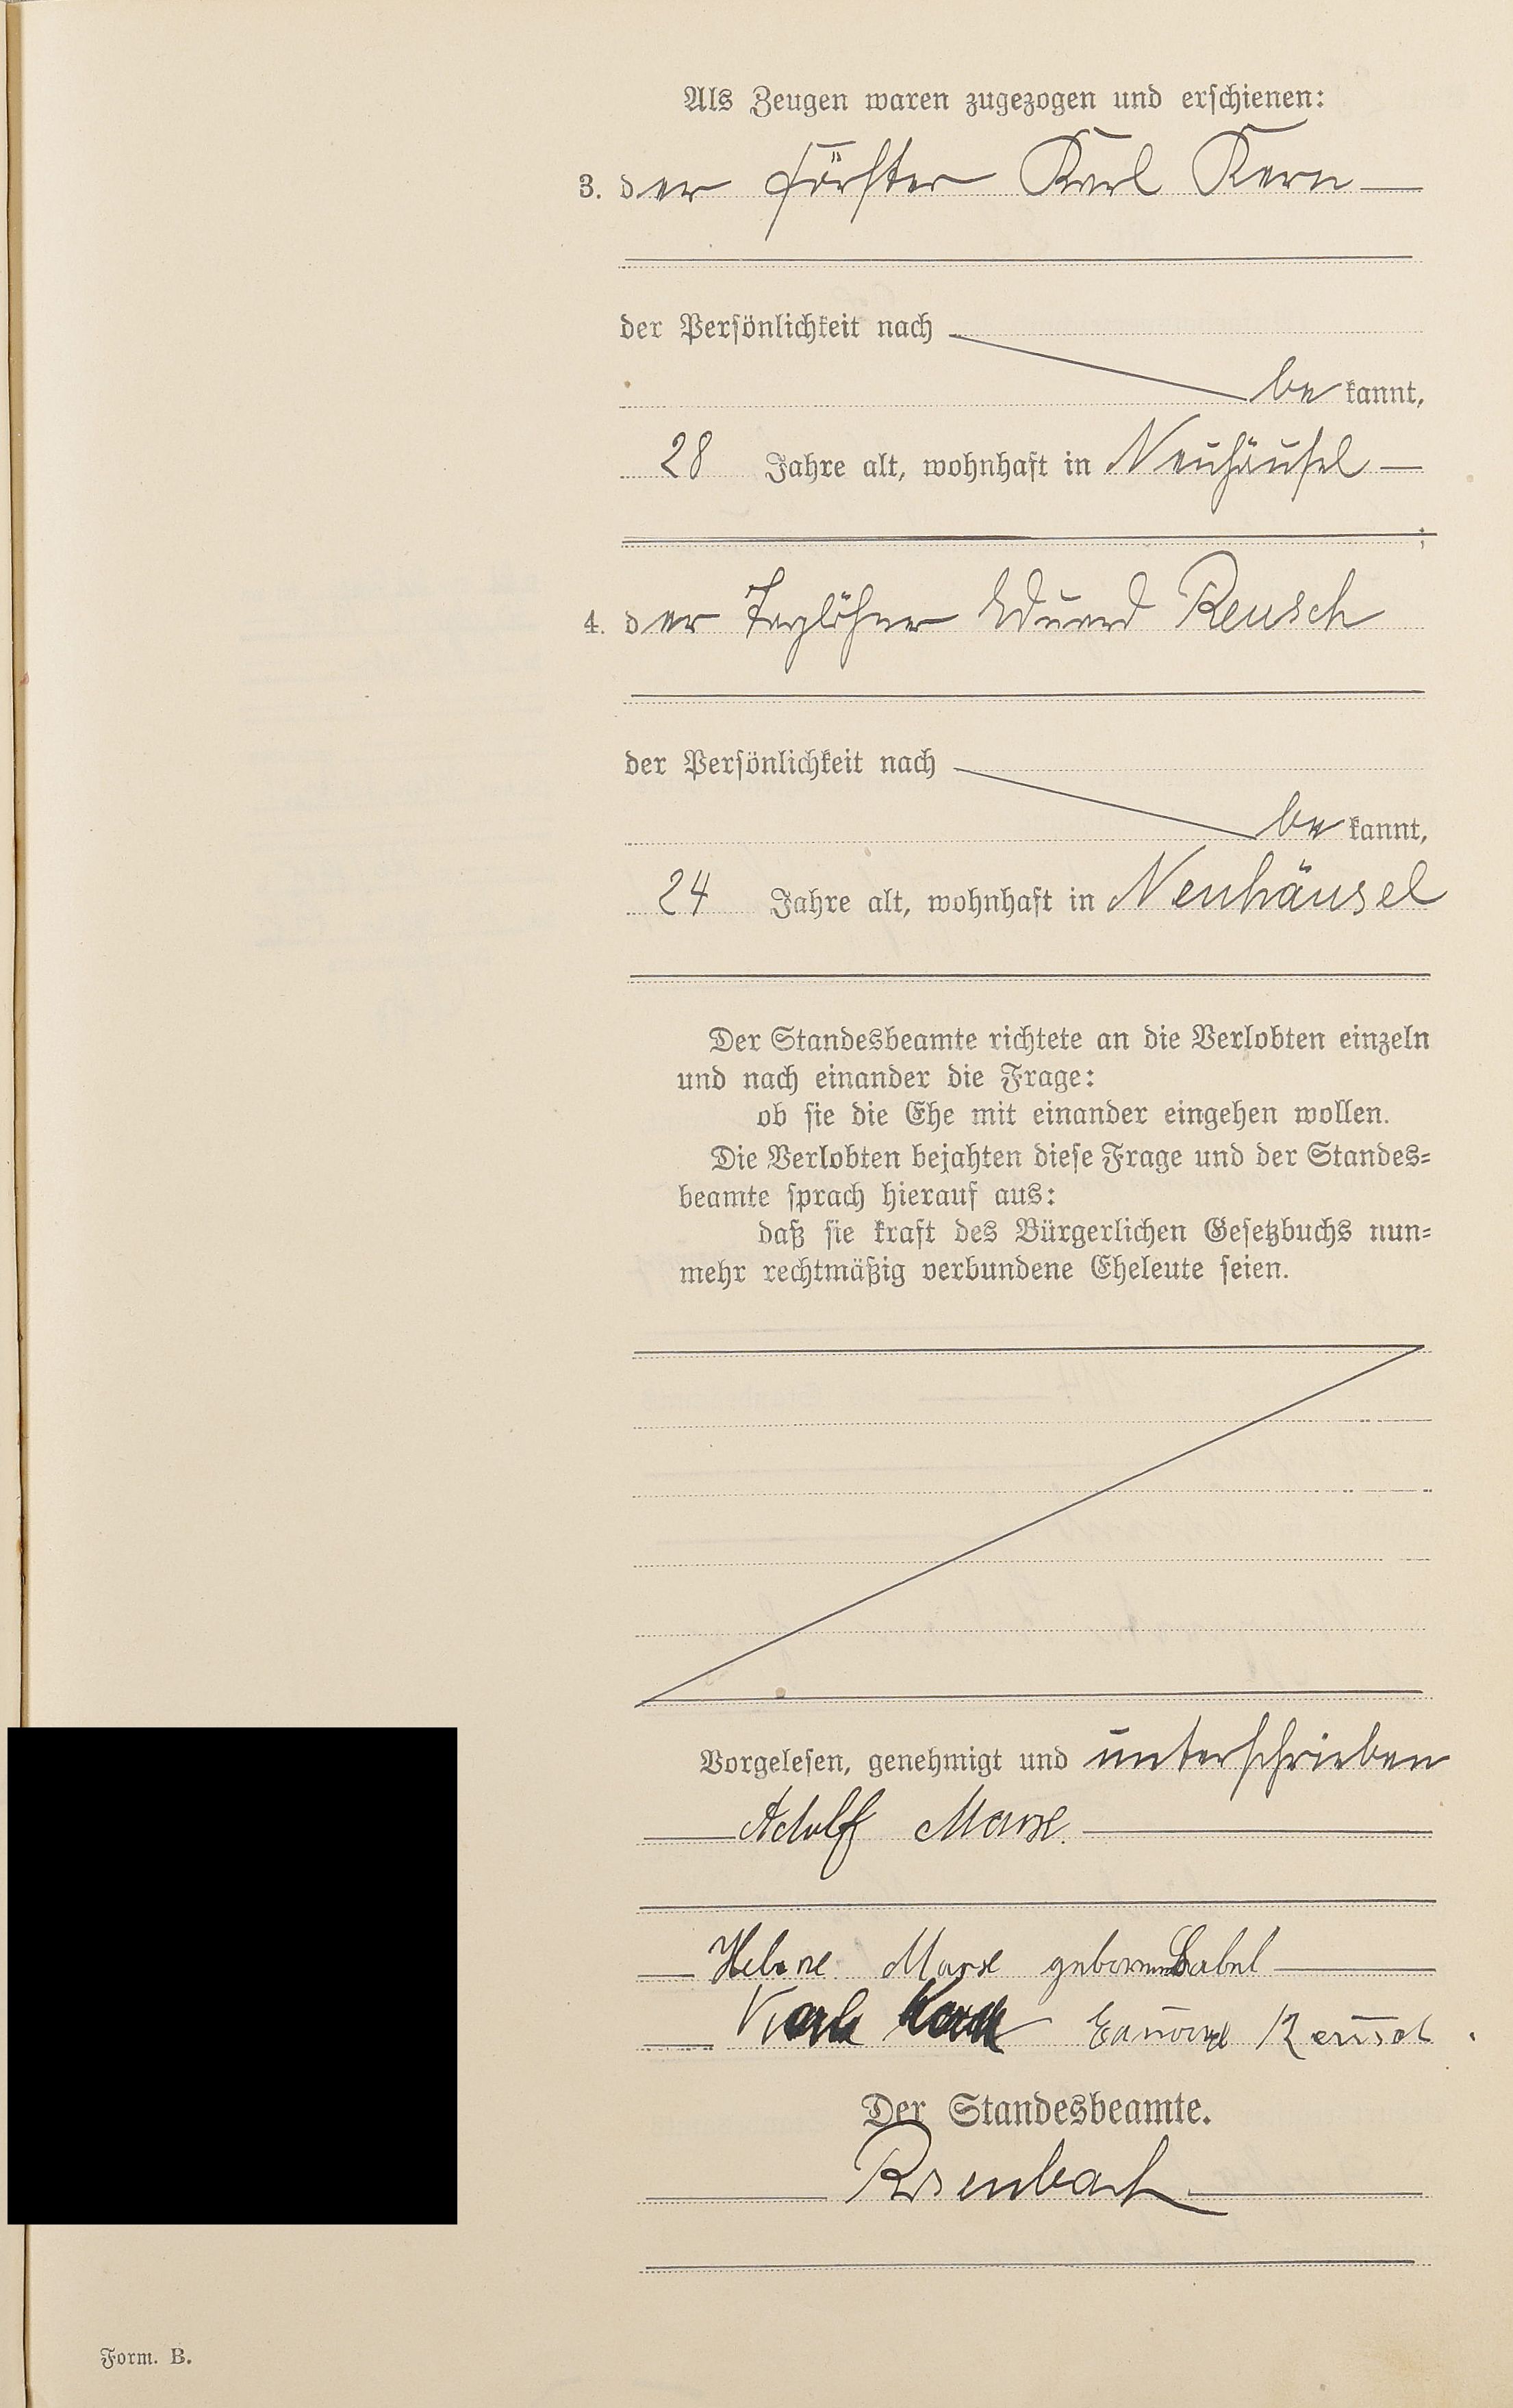 Als Zeugen waren zugezogen und erschienen:
3. der Förster Karl Kern
der Persönlichkeit nach
be kannt,
28 Jahre alt, wohnhaft in Neuhäusel
;
4. der Taglöhner Eduard Reusch
der Persönlichkeit nach
be kannt,
24 Jahre alt, wohnhaft in Neuhäusel
Der Standesbeamte richtete an die Verlobten einzeln
und nach einander die Frage:
ob sie die Ehe mit einander eingehen wollen.
Die Verlobten bejahten diese Frage und der Standes=
beamte sprach hierauf aus:
daß sie kraft des Bürgerlichen Gesetzbuchs nun=
mehr rechtmäßig verbundene Eheleute seien.
Vorgelesen, genehmigt und unterschrieben
Adolf Marx.
Helene Marx geborene
Karl Kern Eduard Reusch
Der Standesbeamte.
Rosenbach
Form. B.